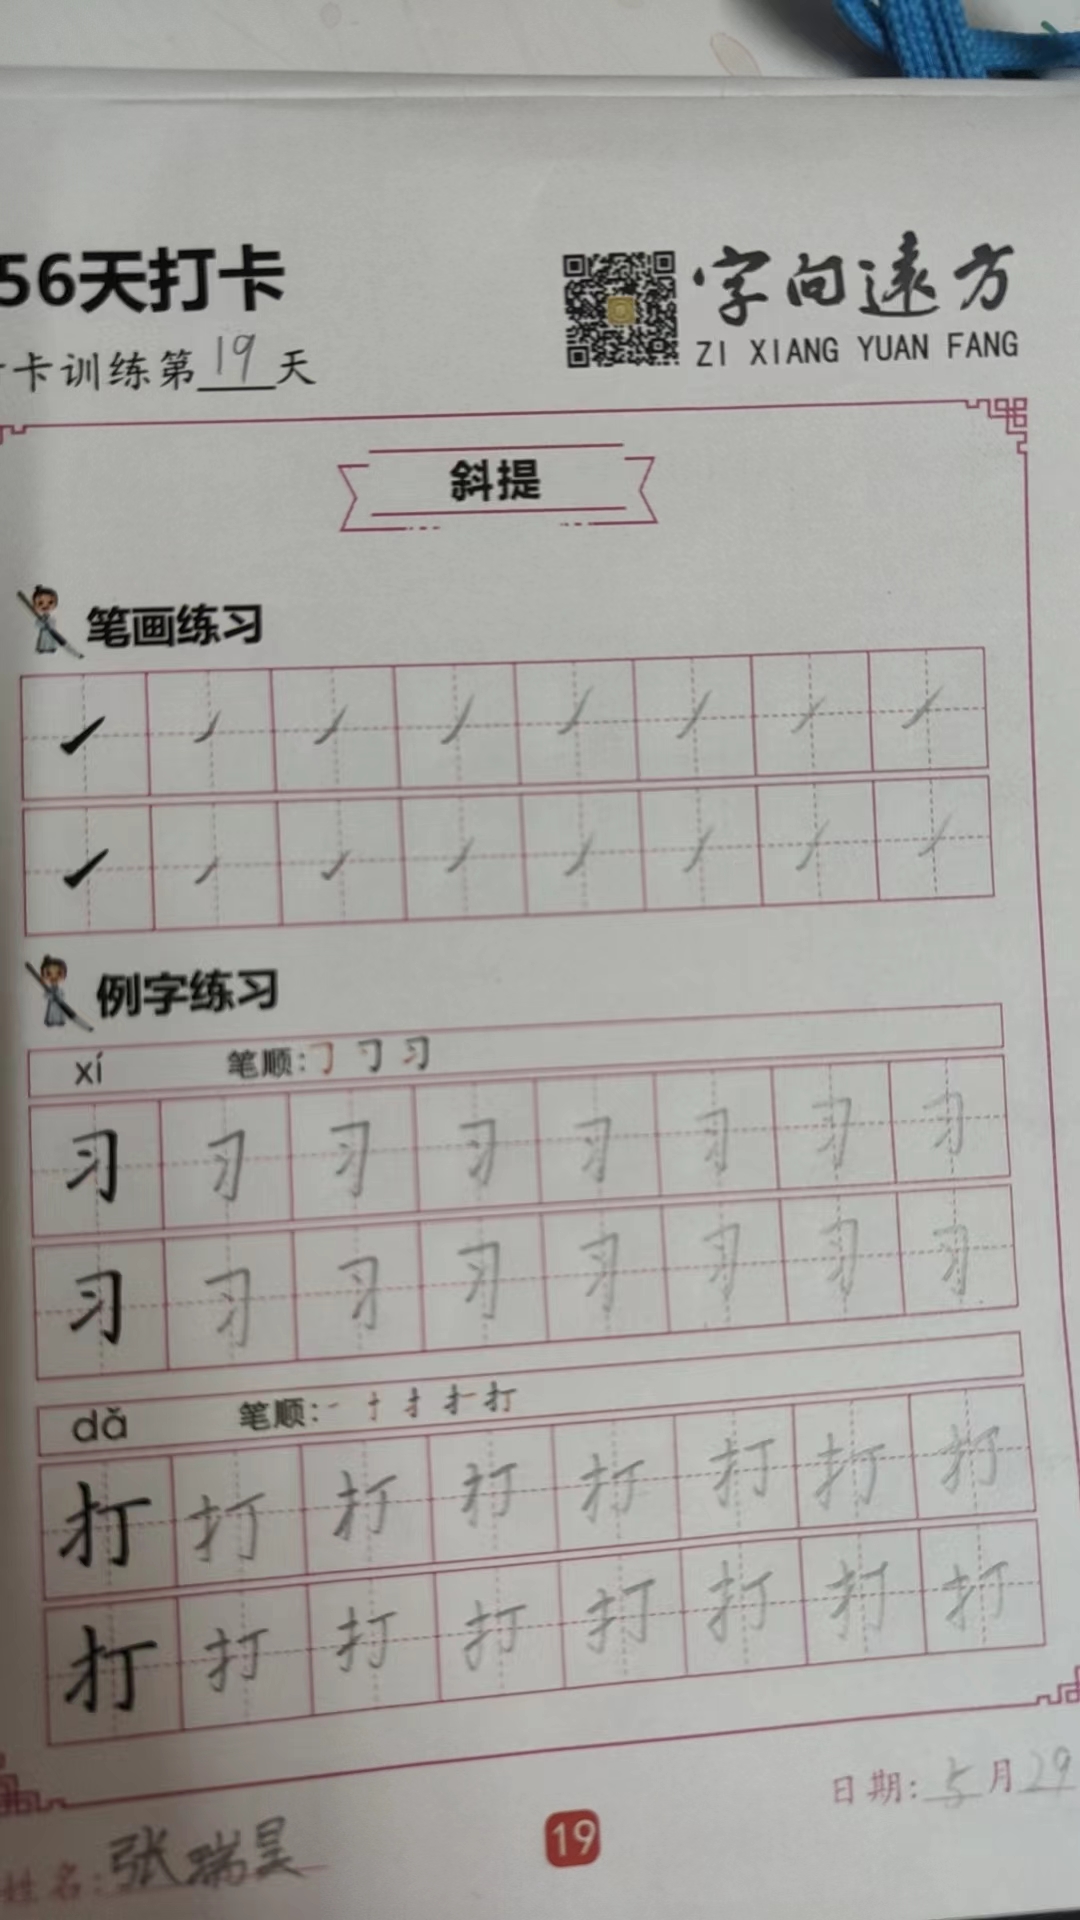 56天打卡
字向遠方
卡训练第19天
ZI XIANG YUAN FANG
斜提
笔画练习
例字练习
xí 笔顺:
习 习 习 习 习 习 习 习
习 习 习 习 习 习 习 习
dǎ 笔顺:
打 打 打 打 打 打 打 打
打 打 打 打 打 打 打 打
日期:5月29
19
姓名:张瑞昊